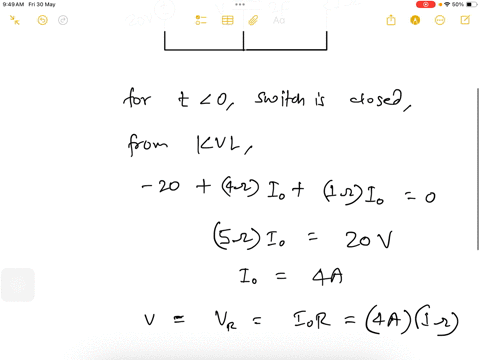 9:49 AM Fri 30 May
50%
Aa
for t < 0, switch is closed,
from KVL,
-20 + (4Ω) I₀ + (1Ω) I₀ = 0
(5Ω) I₀ = 20 V
I₀ = 4A
V = V_R = I₀R = (4A)(1Ω)